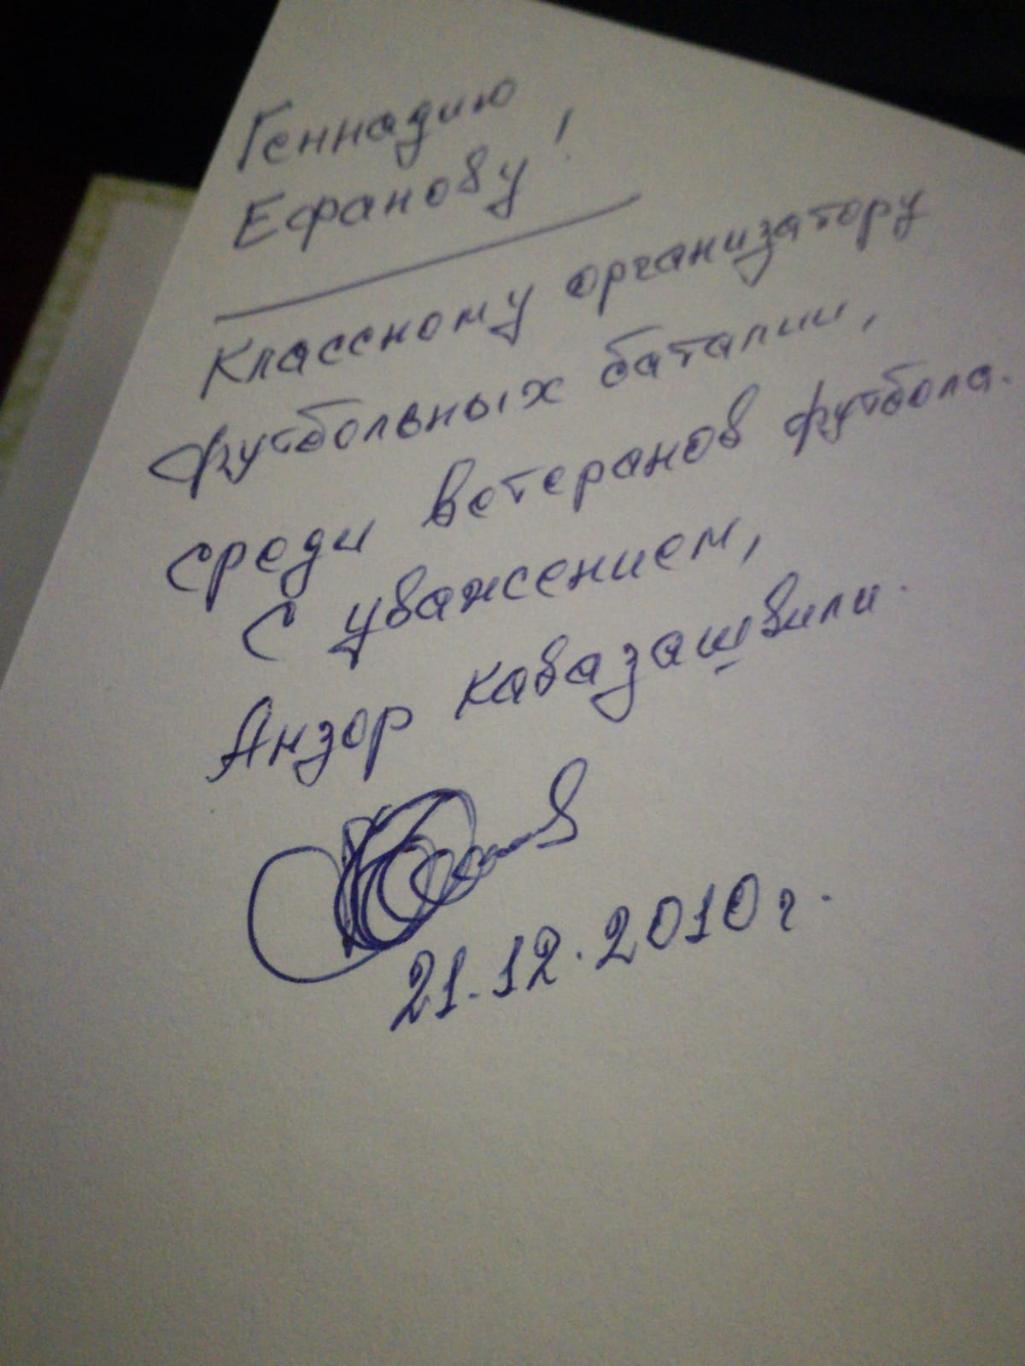 Геннадию
Ефанову!
Классному организатору
футбольных баталии,
среди ветеранов футбола.
С уважением,
Анзор Кавазашвили.
21.12.2010 г.